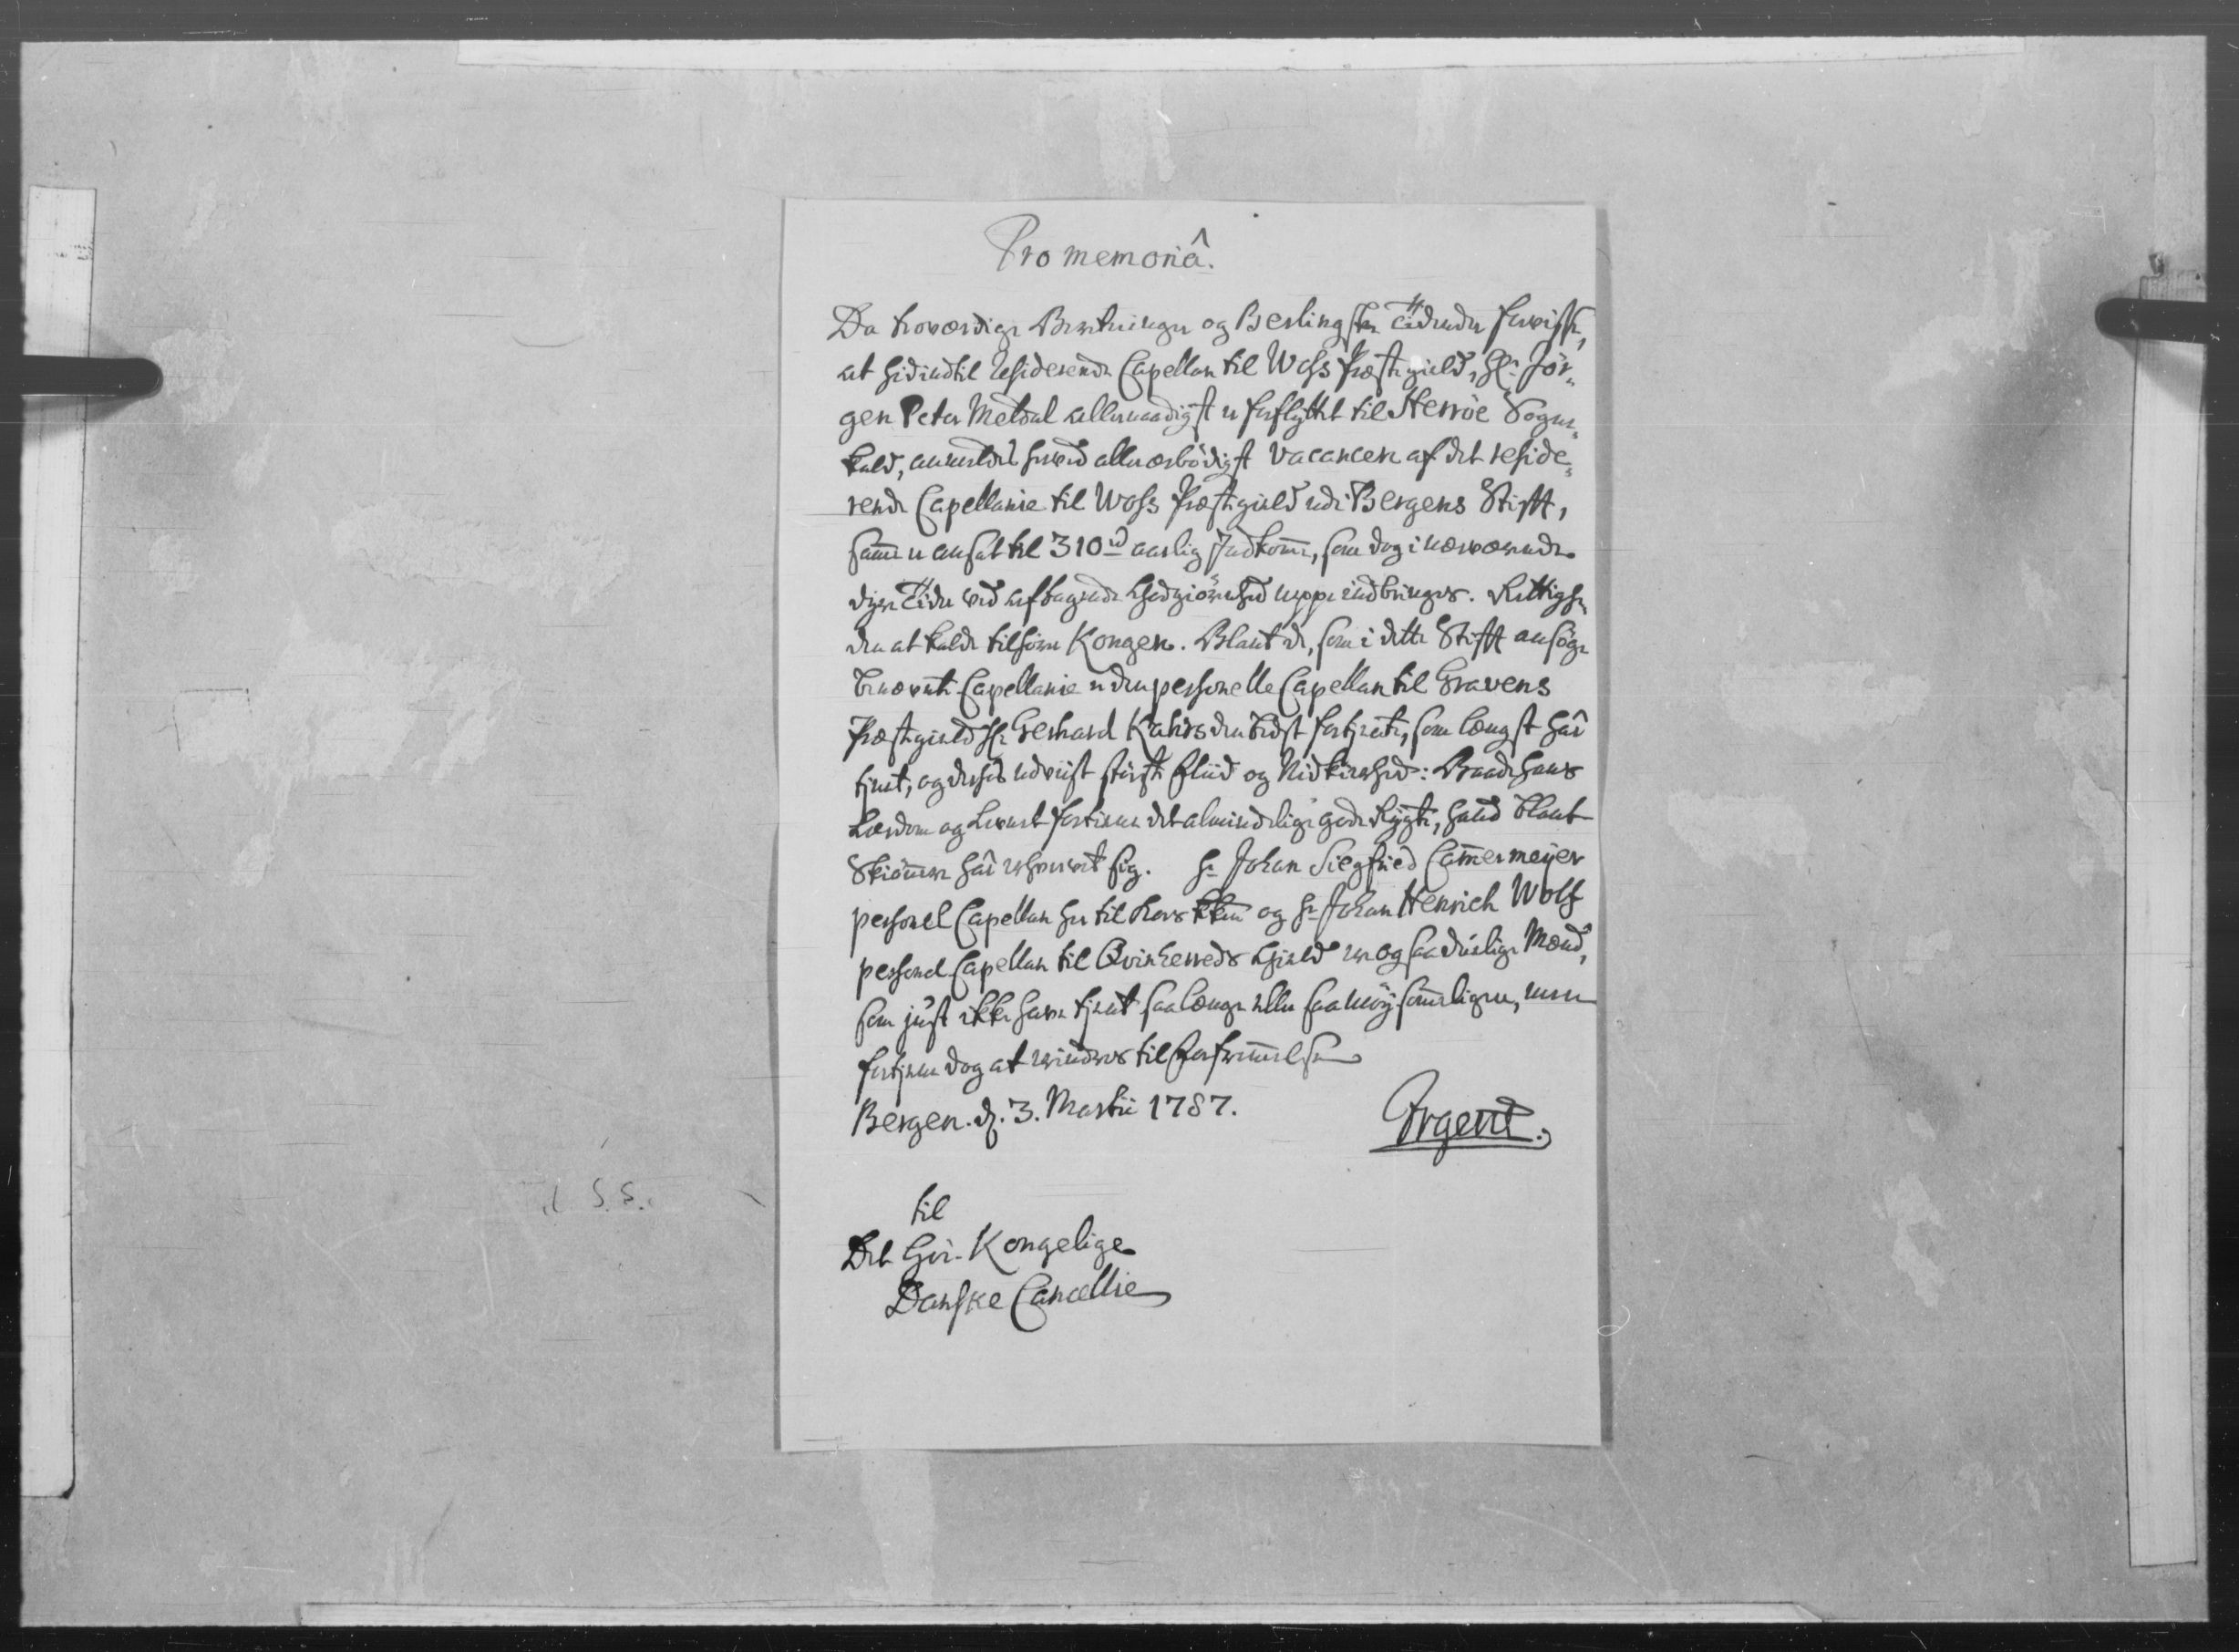 Pro memoriâ.
Da troværdige Beretninger og Berlingske Tidender forvisse,
at hidindtil residerende Capellan til Woss Præstegield, Hr. Jør¬
gen Peter Meldal allernaadigst er forflyttet til Herröe Sogne¬
kald, anmeldes herved allerærbødigst Vacancen af det reside¬
rende Capellanie til Woss Præstegield udi Bergens Stift,
samme er ansat til 310 rd aarlig Indkomme, som dog i nærværende
dyre Tider ved aftagende neppe indbringes. Rettighe¬
den at kalde tilhører Kongen. Blant de, som i dette Stift ansøge
benævnte Capellanie er den personelle Capellan til Gravens
Præstegield Hr Gerhard Kahrs den best fortjente, som længst har
tjent, og derhos udviist störste Fliid og Nidkierhed: Baade hans
Lærdom og Levnet fortiener det almindelige gode Rygte, hand blant
Skiønnere har erhvervet sig. Hr Johan Siegfried Cammermeyer
personel Capellan her til Kors Kken og Hr Johan Henrich Wolf
personel Capellan til Qvinherreds Gield er og saa duelige Mænd,
som just ikke have tjent saa længe eller saa möysommeligen, men
fortjene dog at erindres til Forfremmelse
Bergen. d. 3. Martii 1787.
Irgens.
til
Det Høi-Kongelige
Danske Cancellie
S. S.